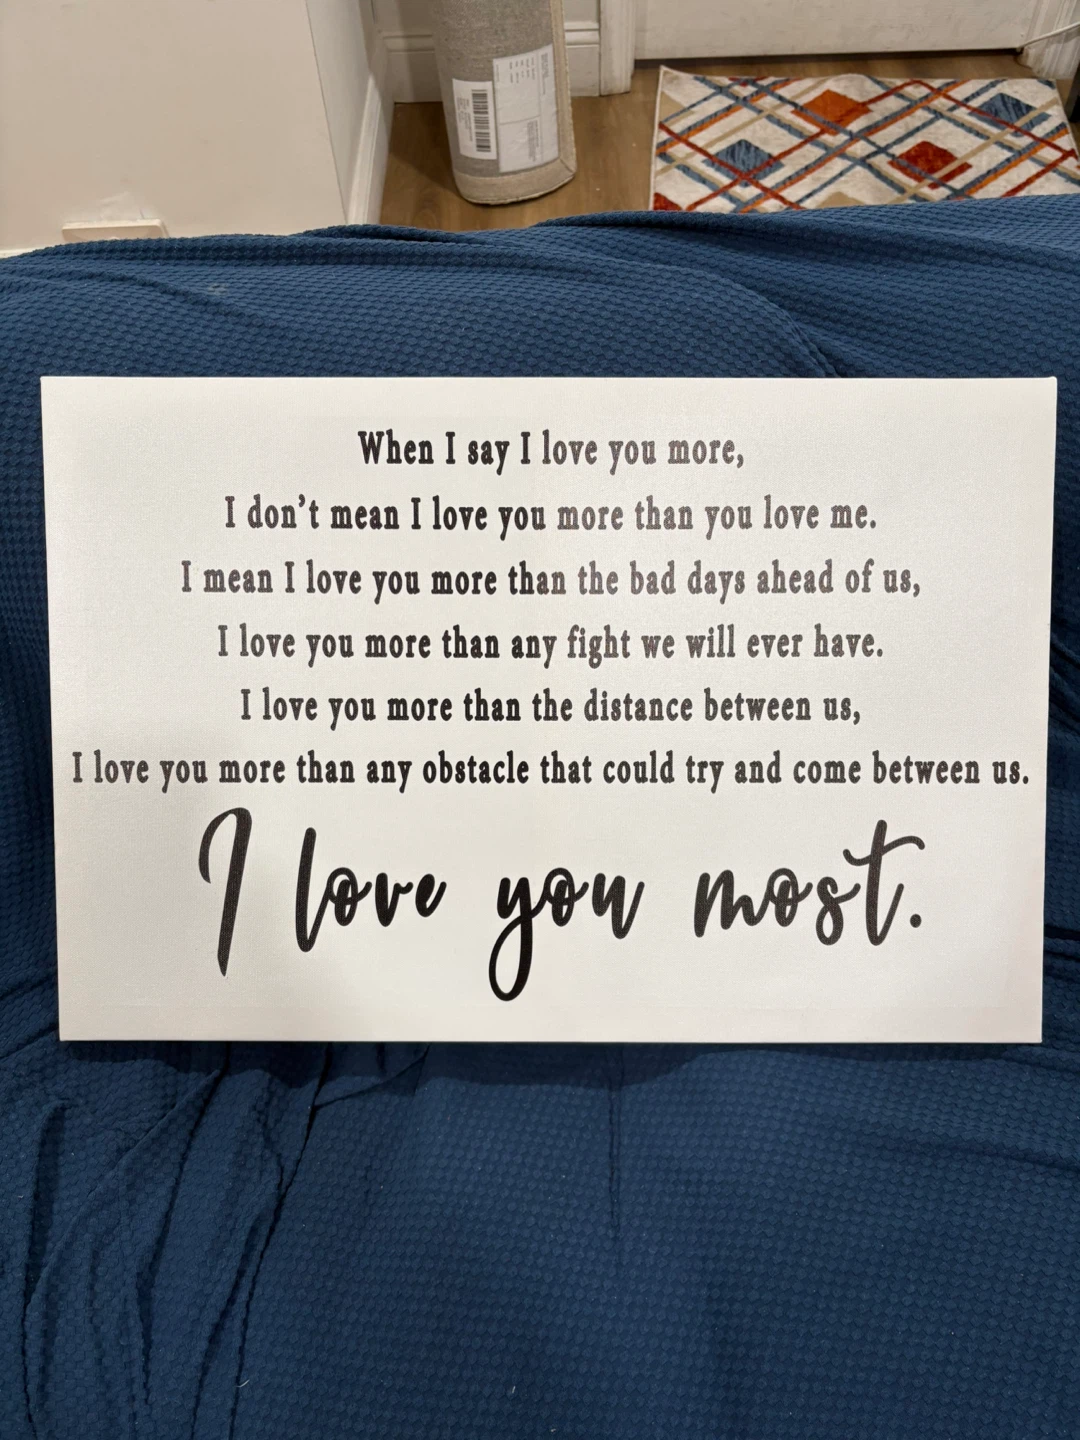 When I say I love you more,
I don’t mean I love you more than you love me.
I mean I love you more than the bad days ahead of us,
I love you more than any fight we will ever have.
I love you more than the distance between us,
I love you more than any obstacle that could try and come between us.
I love you most.